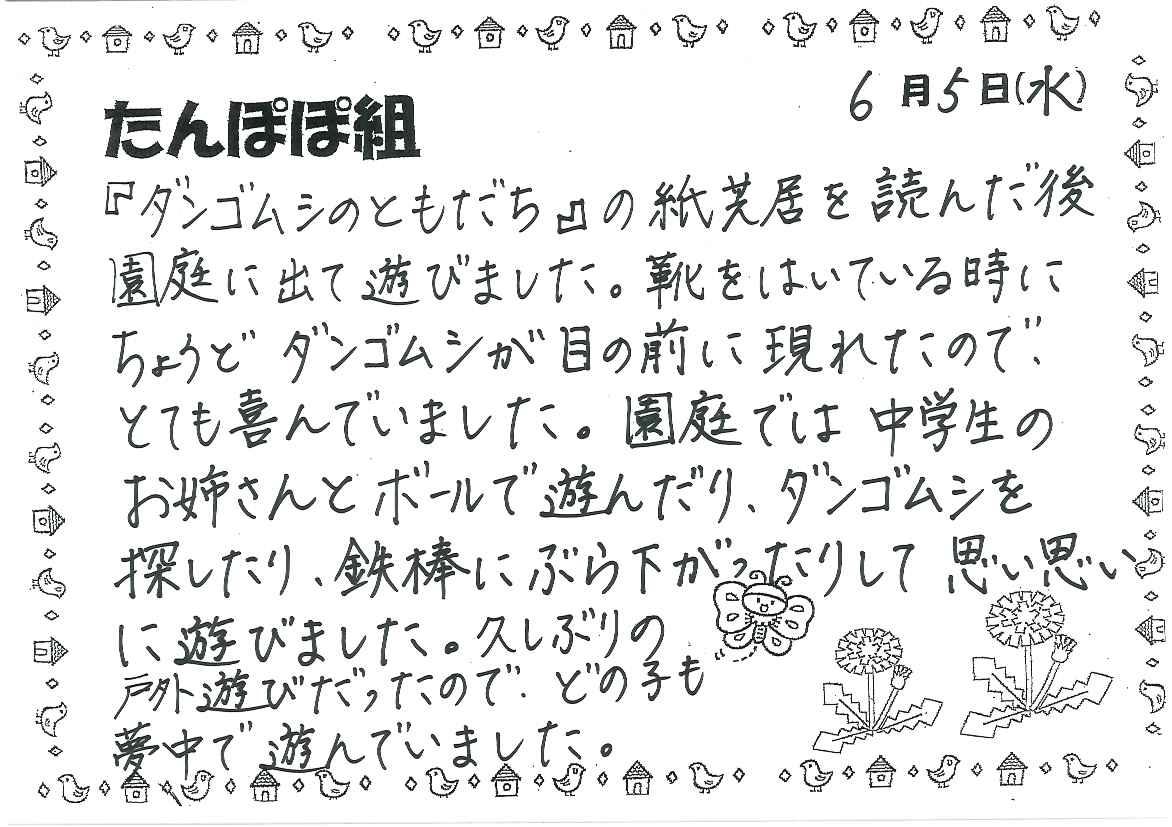 6月5日(水)
たんぽぽ組
『ダンゴムシのともだち』の紙芝居を読んだ後
園庭に出て遊びました。靴をはいている時に
ちょうどダンゴムシが目の前に現れたので、
とても喜んでいました。園庭では中学生の
お姉さんとボールで遊んだり、ダンゴムシを
探したり、鉄棒にぶら下がったりして思い思い
に遊びました。久しぶりの
戸外遊びだったので、どの子も
夢中で遊んでいました。